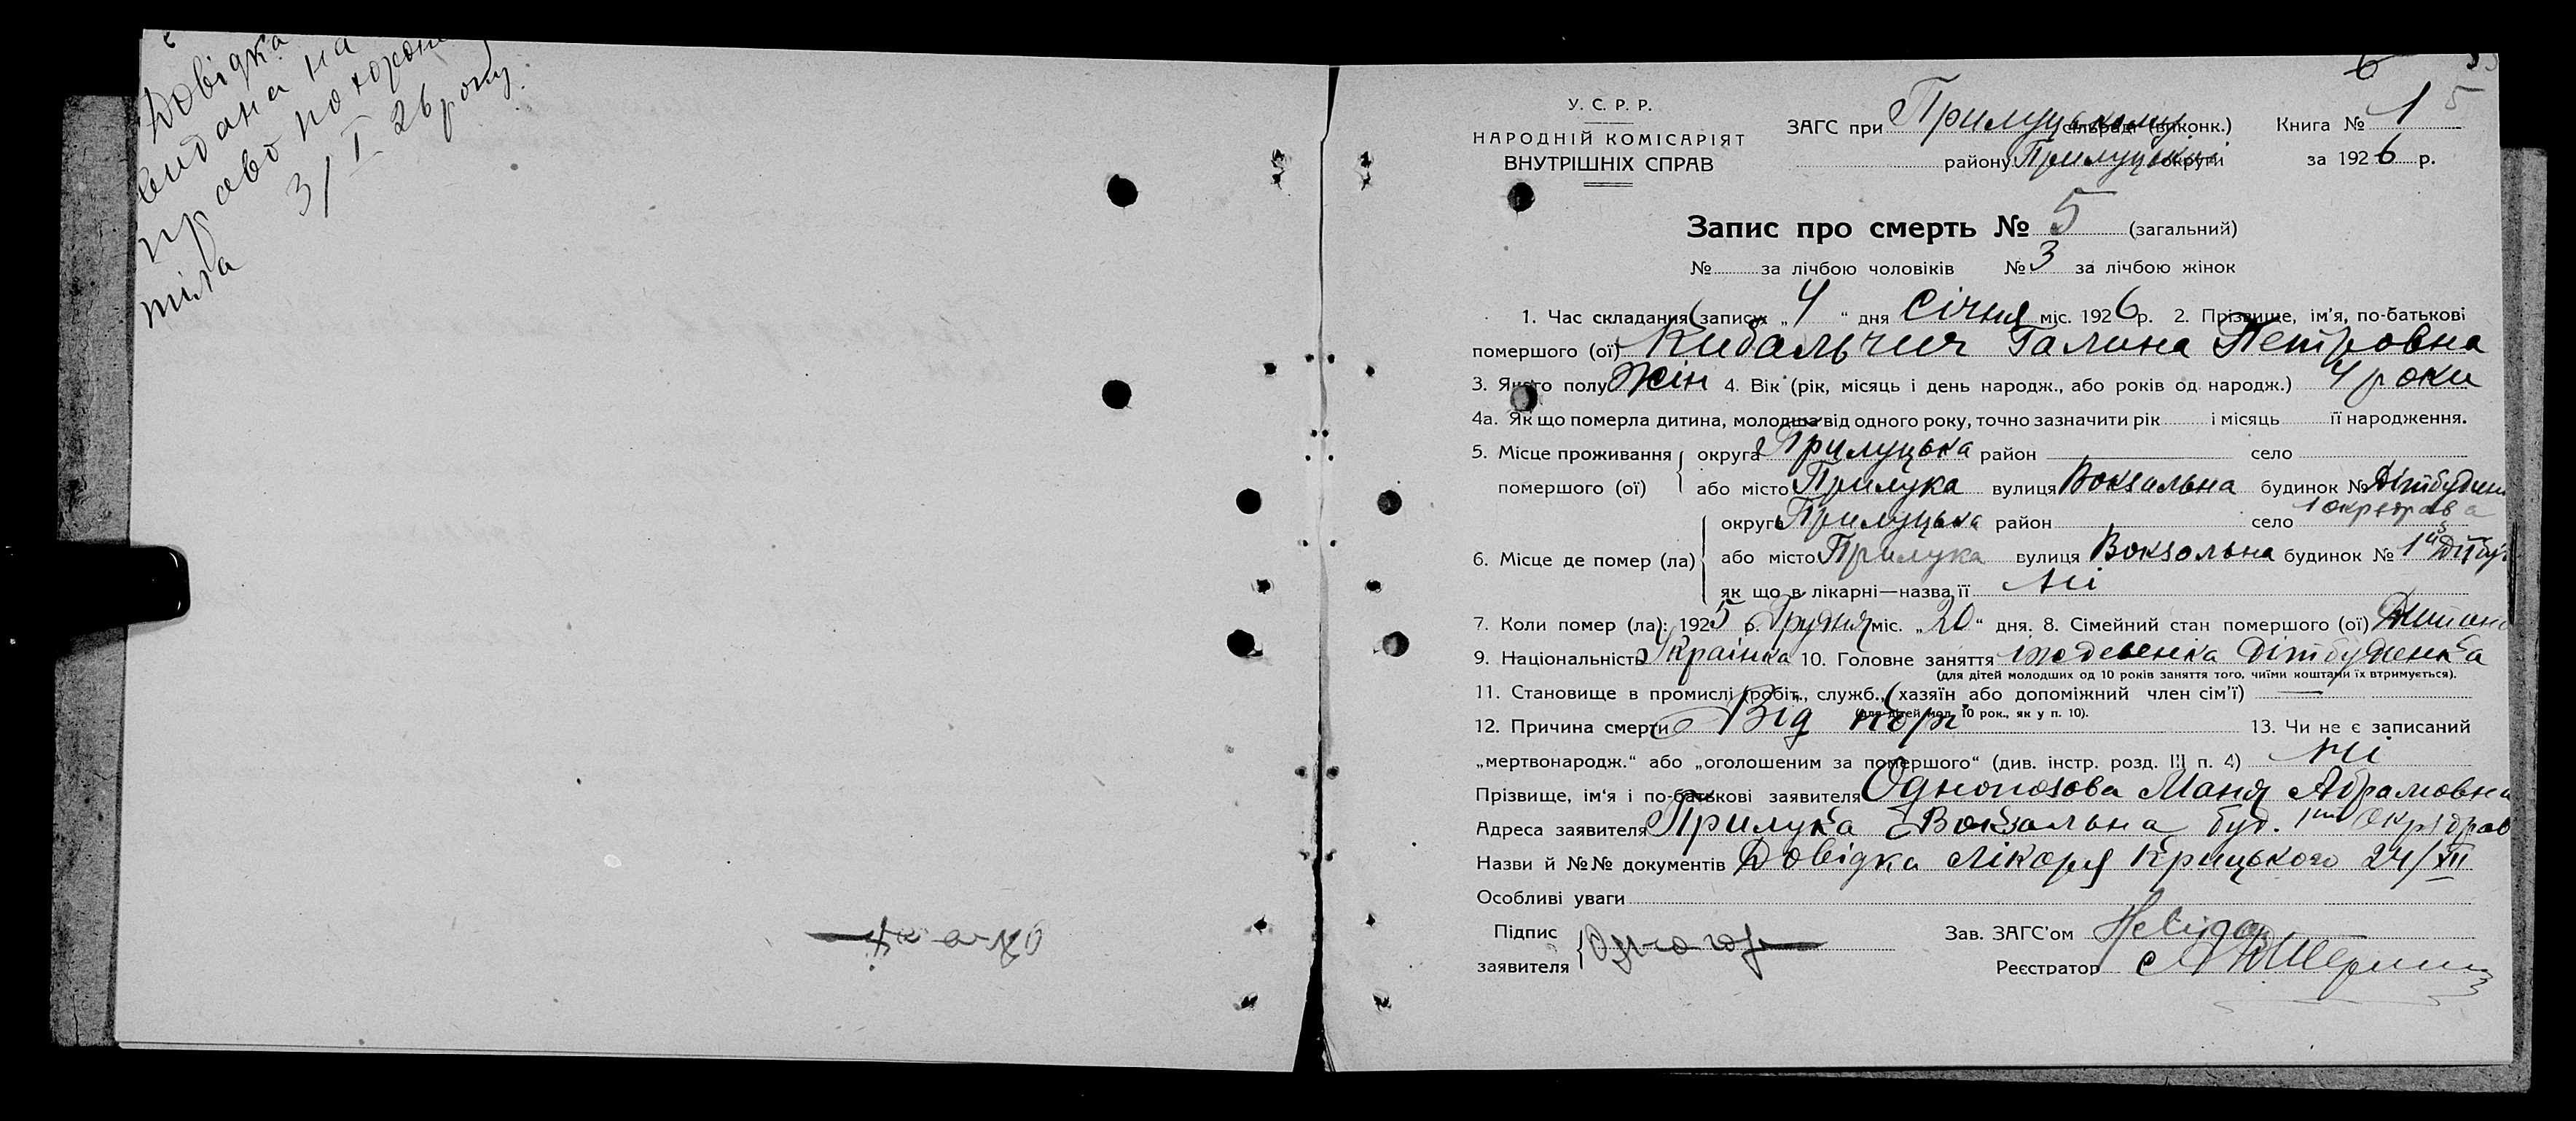 Довідка
видана на
право похорон
тіла 3/I 26 року.
6
5
У. С. Р. Р.
НАРОДНІЙ КОМІСАРІЯТ
ВНУТРІШНІХ СПРАВ
ЗАГС при Прилуцькому сільраді (виконк.) Книга № 1
району Прилуцької округи за 1926 р.
Запис про смерть № 5 (загальний)
№ за лічбою чоловіків № 3 за лічбою жінок
1. Час складання запису: „4“ дня Січня міс. 1926 р. 2. Прізвище, ім'я, по-батькові
помершого (ої) Кибальчич Галина Петровна
3. Якого полу Жін 4. Вік (рік, місяць і день народж., або років од народж.) 4 роки
4а. Як що померла дитина, молодша від одного року, точно зазначити рік і місяць її народження.
5. Місце проживання помершого (ої) округа Прилуцька район — село
або місто Прилука вулиця Вокзальна будинок № Дітбудин
1 окрздрава
6. Місце де помер (ла) округа Прилуцька район село
або місто Прилука вулиця Вокзальна будинок № 1й Дітбуд
як що в лікарні—назва її ні
7. Коли помер (ла): 1925 р. Грудня міс. „20“ дня. 8. Сімейний стан помершого (ої) Дитина
9. Національність Українка 10. Головне заняття Дітбудинка
(для дітей молодших од 10 років заняття того, чиїми коштами їх втримується).
11. Становище в промислі (робіт., служб., хазяїн або допоміжний член сім'ї) —
(для дітей мол. 10 рок., як у п. 10).
12. Причина смерти Від кори 13. Чи не є записаний
„мертвонародж.“ або „оголошеним за помершого“ (див. інстр. розд. III п. 4) ні
Прізвище, ім'я і по-батькові заявителя Однопозова Маня Абрамовна
Адреса заявителя Прилука Вокзальна буд. 1 Окрздрав
Назви й №№ документів Довідка лікаря Крицького 24/XII
Особливі уваги
Підпис
заявителя
Зав. ЗАГС'ом
Реєстратор